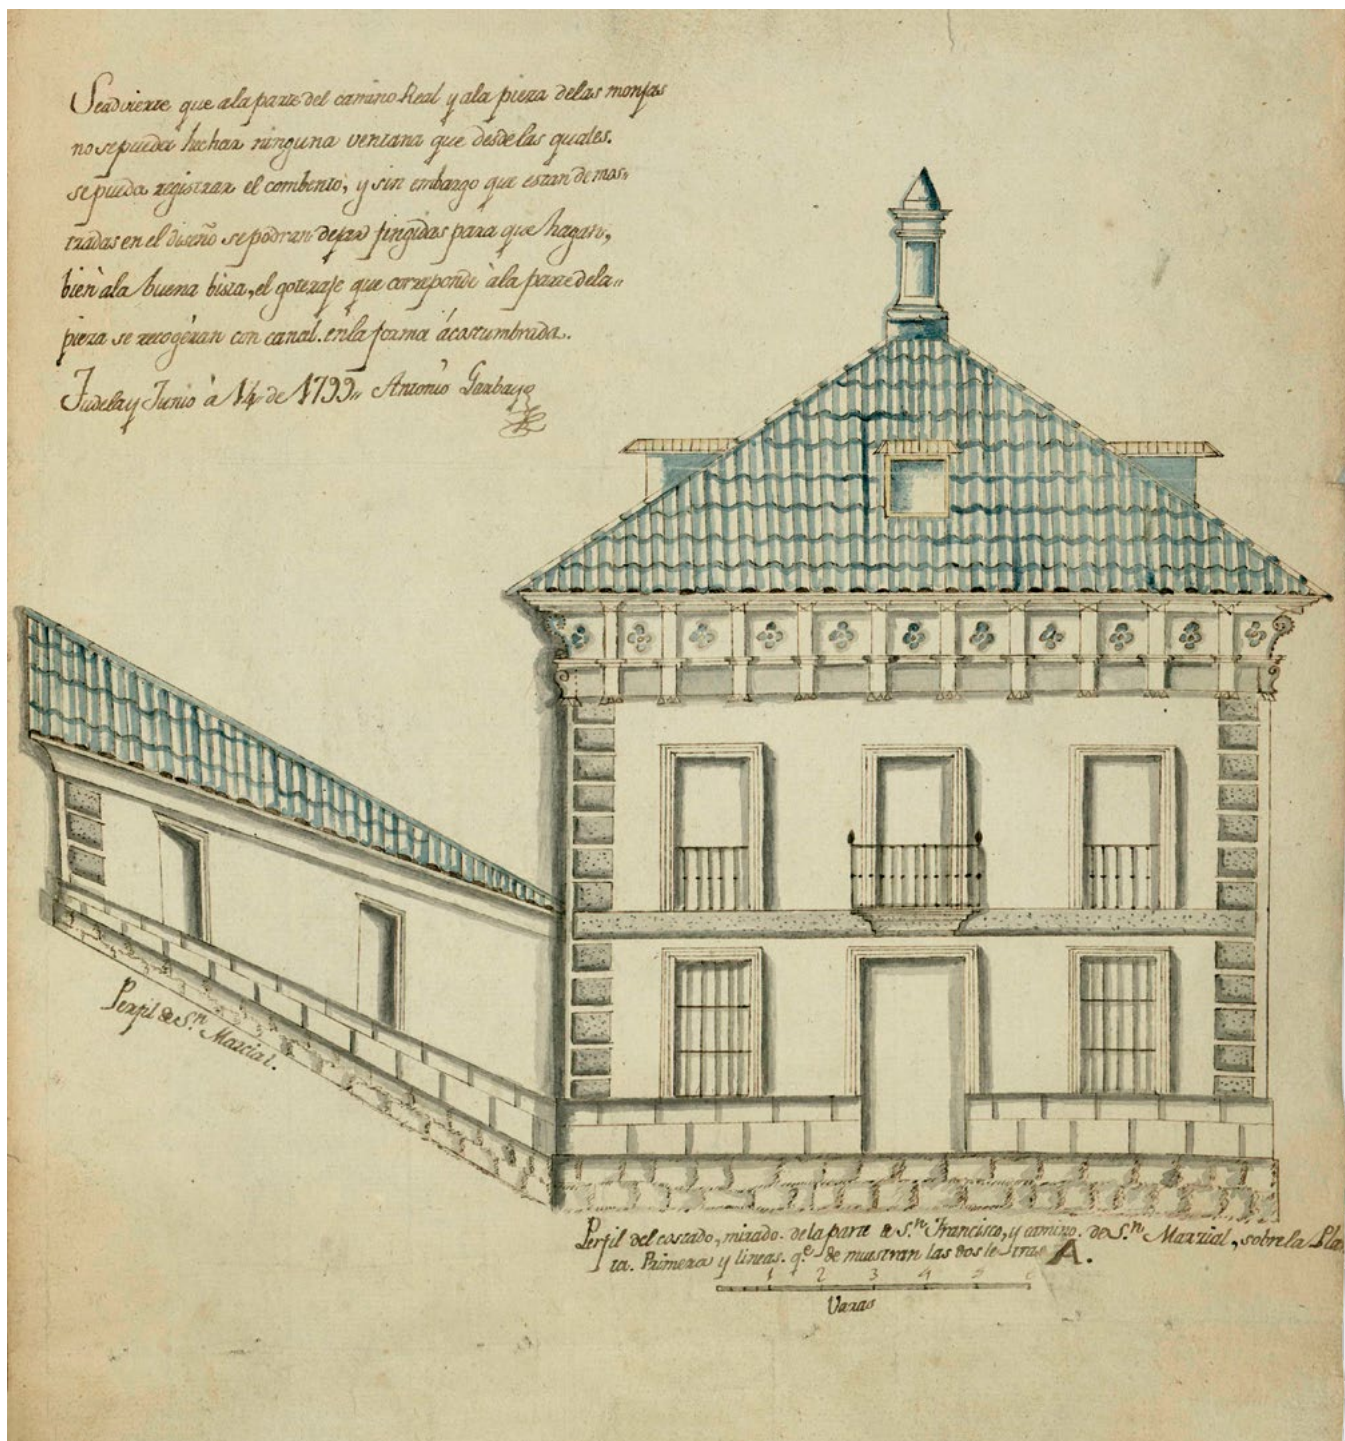 Seadvierte que ala parte del camino Real y ala pieza delas monjas
no sepueda hechar ninguna ventana que desdelas quales.
sepueda registrar el combento; y sin embargo que estan demos„
tradas en el diseño sepodran dejar fingidas para que hagan„
bien ala buena bista, el goteraje que corresponde àla parte dela„
pieza se recogèran con canal. enla forma ácostumbrada.
Tudela y Junio à 14 de 1799„ Antonio Garbayo
Perfil de Sn. Marcial.
Perfil del costado, mirado. dela parte de S.n Francisco, y camino. de S.n Marzial, sobre la Plan
ta. Primera y lineas. q.e de muestran las dos letras A.
1 2 3 4 5 6
Varas